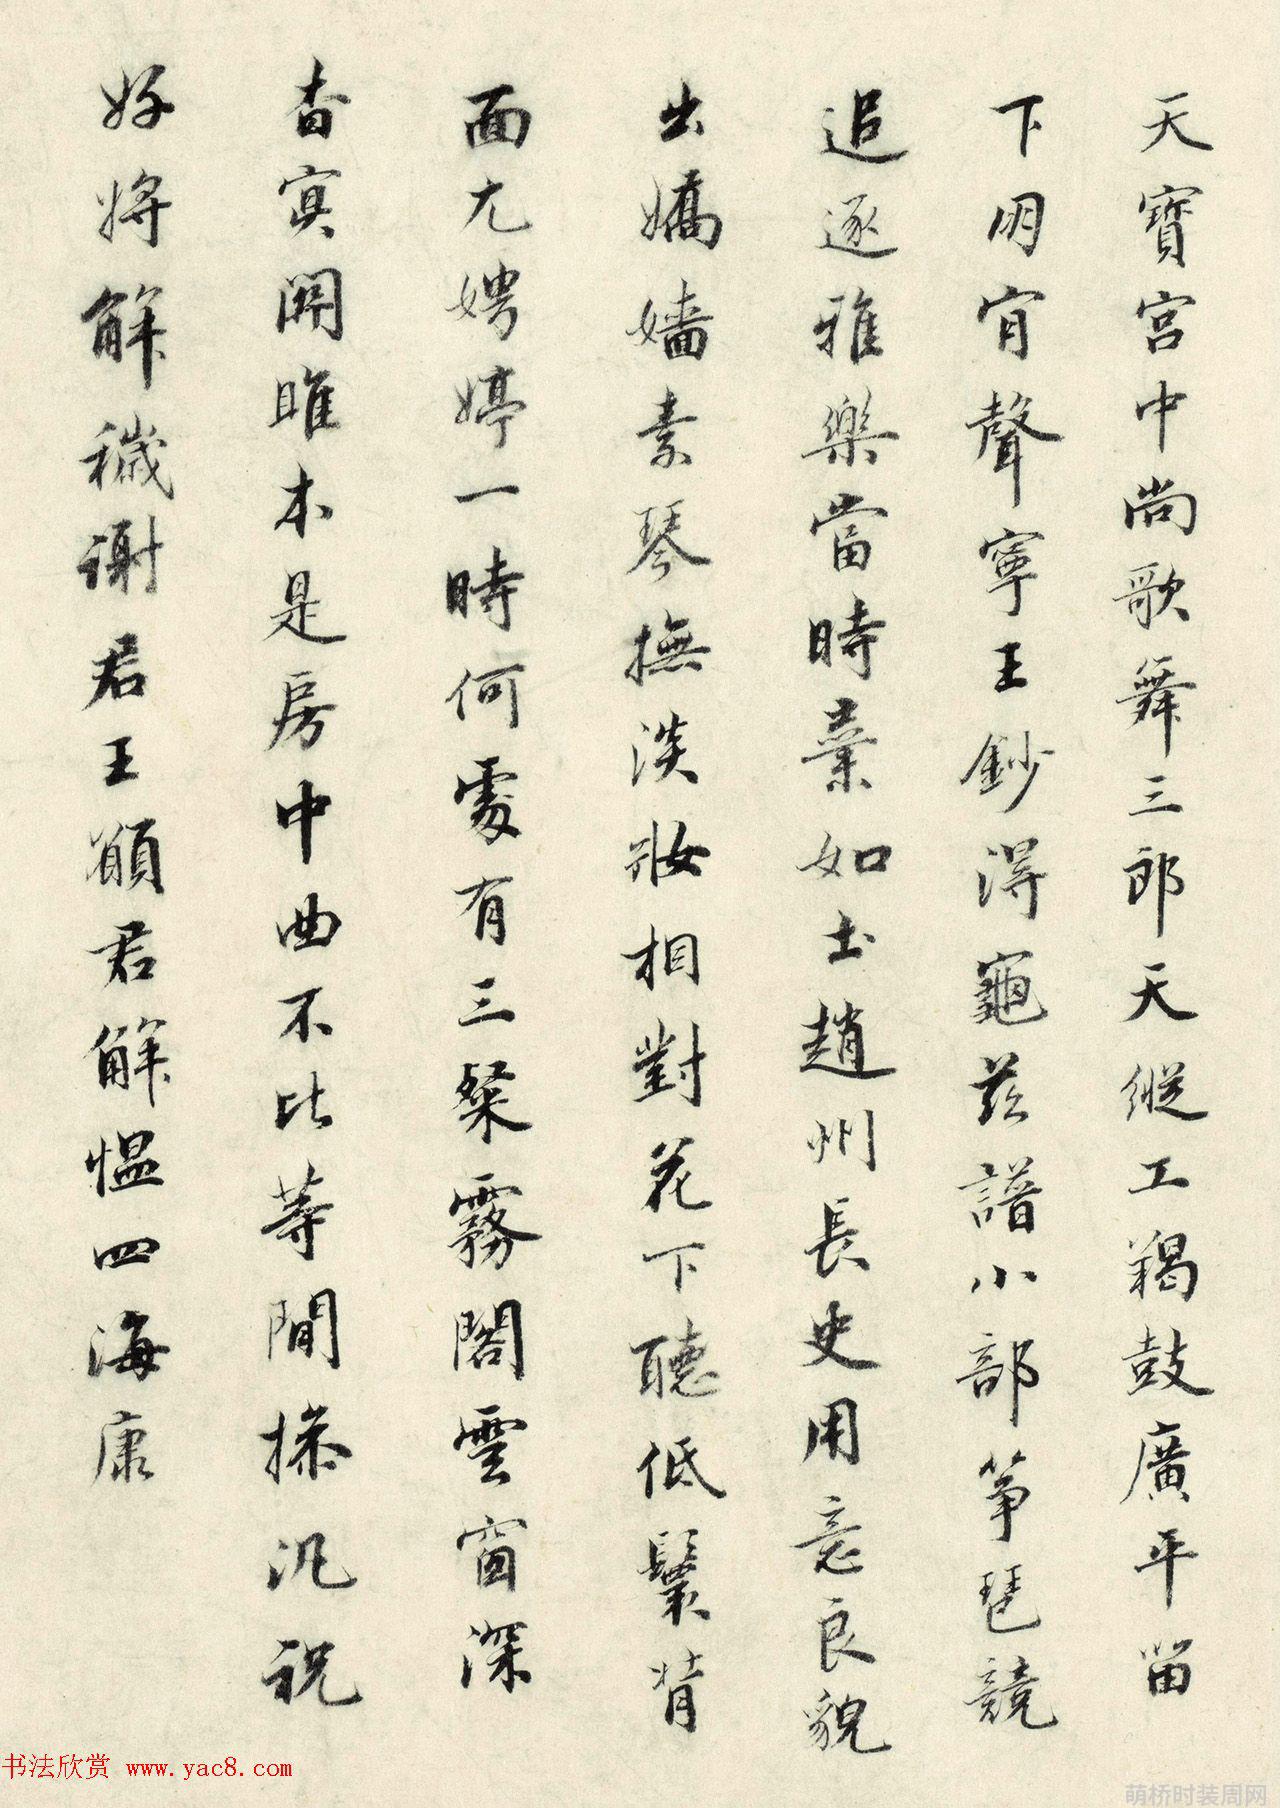 天寶宮中尚歌舞三郎天縱工羯鼓廣平留
下明宵聲寧王鈔得龜茲譜小部箏琶競
追逐雅樂當時棄如土趙州長史用意良貌
出嬌嬙素琴撫淡妝相對花下聽低鬟背
面尤娉婷一時何處有三粲霧閣雲窗深
杳冥關雎本是房中曲不比等閒操汎祝
好將解穢謝君王願君解慍四海康
书法欣赏 www.yac8.com
萌桥时装周网